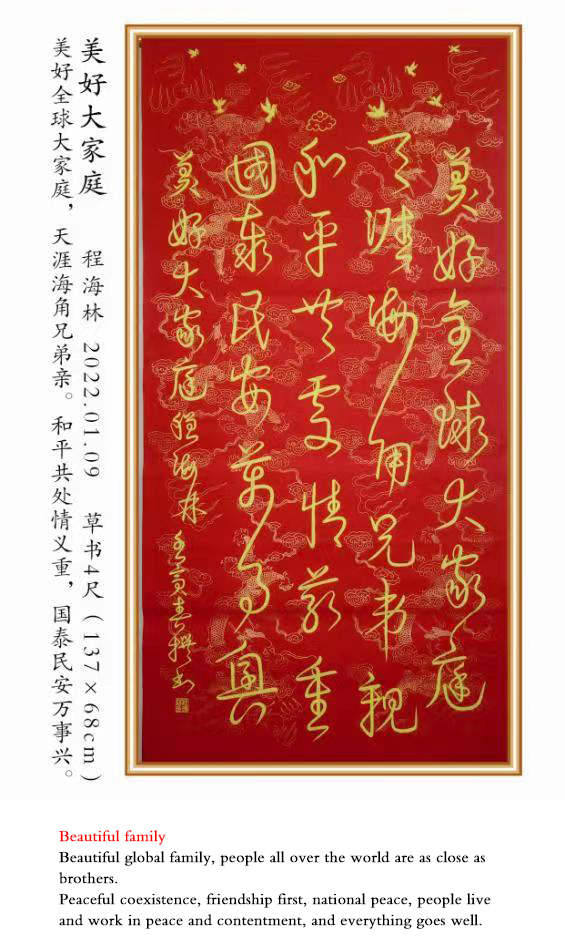 美好大家庭 程海林 2022.01.09 草书4尺(137×68cm)
美好全球大家庭，天涯海角兄弟亲。和平共处情义重，国泰民安万事兴。
美好全球大家庭
天涯海角兄弟親
和平共處情義重
國泰民安萬事興
美好大家庭程海林
Beautiful family
Beautiful global family, people all over the world are as close as
brothers.
Peaceful coexistence, friendship first, national peace, people live
and work in peace and contentment, and everything goes well.